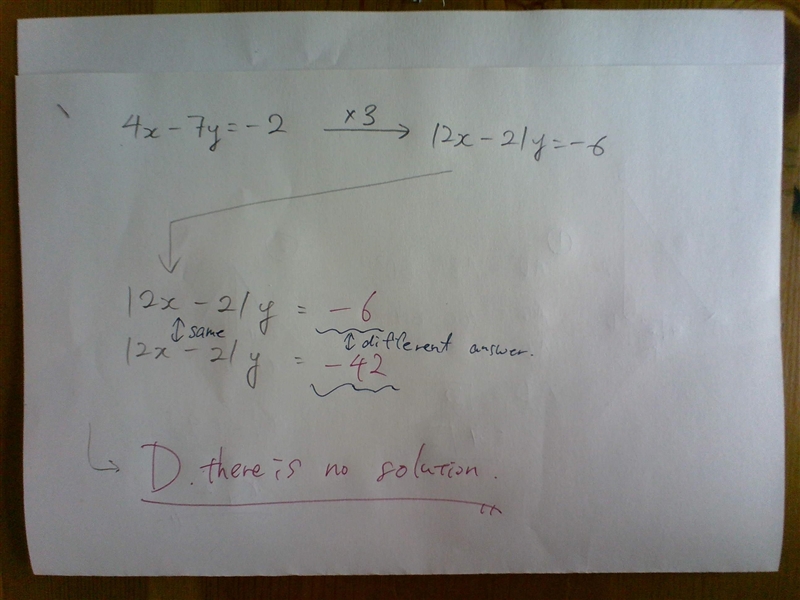 4x - 7y = -2 ×3 → 12x - 21y = -6
12x - 21y = -6
↕ same ↕ different answer.
12x - 21y = -42
↳ D. there is no solution.